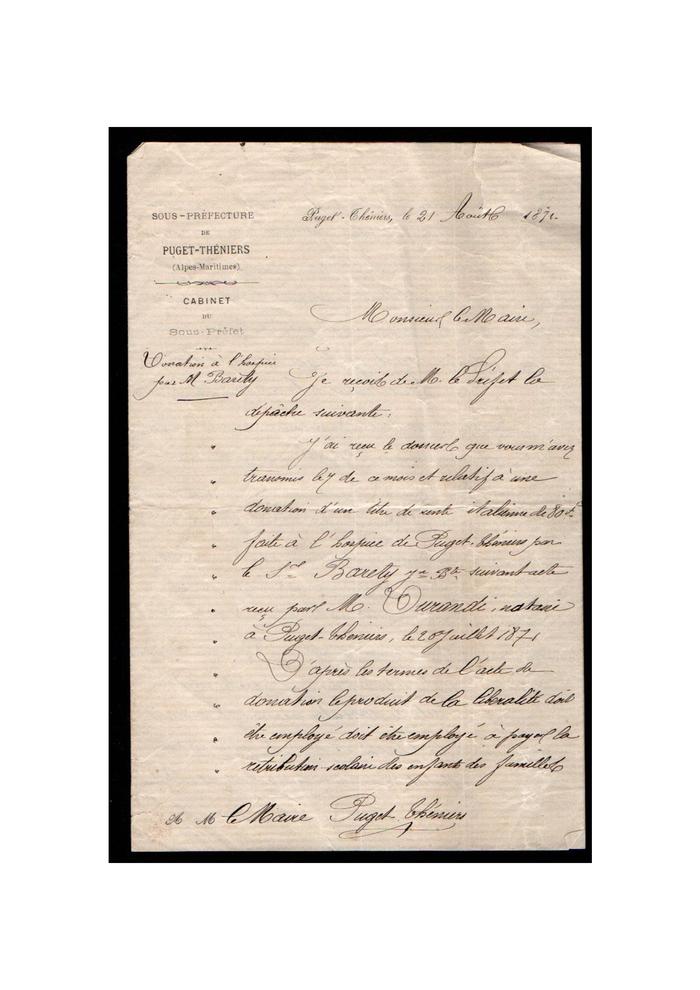 SOUS-PRÉFECTURE
DE
PUGET-THÉNIERS
(Alpes-Maritimes)
CABINET
DU
Sous-Préfet
Puget-Théniers, le 21 Août 1871
Donation à l'hospice
par M Barety
Monsieur le Maire,
Je reçois de M. le Préfet la
dépêche suivante :
" J'ai reçu le dossier que vous m'avez
" transmis le 7 de ce mois et relatif à une
" donation d'un titre de rente italienne de 80 f.
" faite à l'hospice de Puget-Théniers par
" le Sr Barety Jn Bte suivant acte
" reçu par M. Durandi, notaire
" à Puget-Théniers, le 20 Juillet 1871
" D'après les termes de l'acte de
" donation le produit de la libéralité doit
" être employé doit être employé à payer la
" rétribution scolaire des enfants des familles
A M le Maire Puget-Théniers